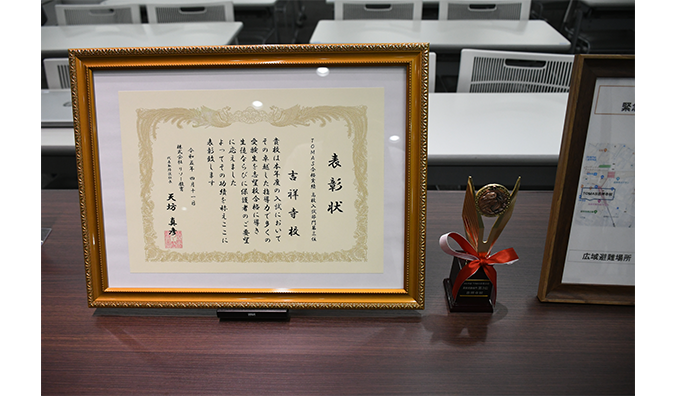 表彰状
TOMAS合格実績 高校入試部門第三位
吉祥寺校
貴校は本年度の入試において
その卓越した指導力で多くの
受検生を志望校合格に導き
生徒ならびに保護者のご要望
に応えました
よってその功績を称えここに
表彰致します
令和五年 四月十一日
株式会社 リソー教育
代表取締役社長
天坊 真彦
緊
広域避難場所